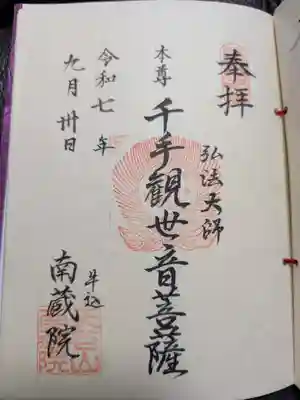 奉拝
弘法大師
本尊
千手観世音菩薩
牛込
南蔵院
令和七年
九月卅日